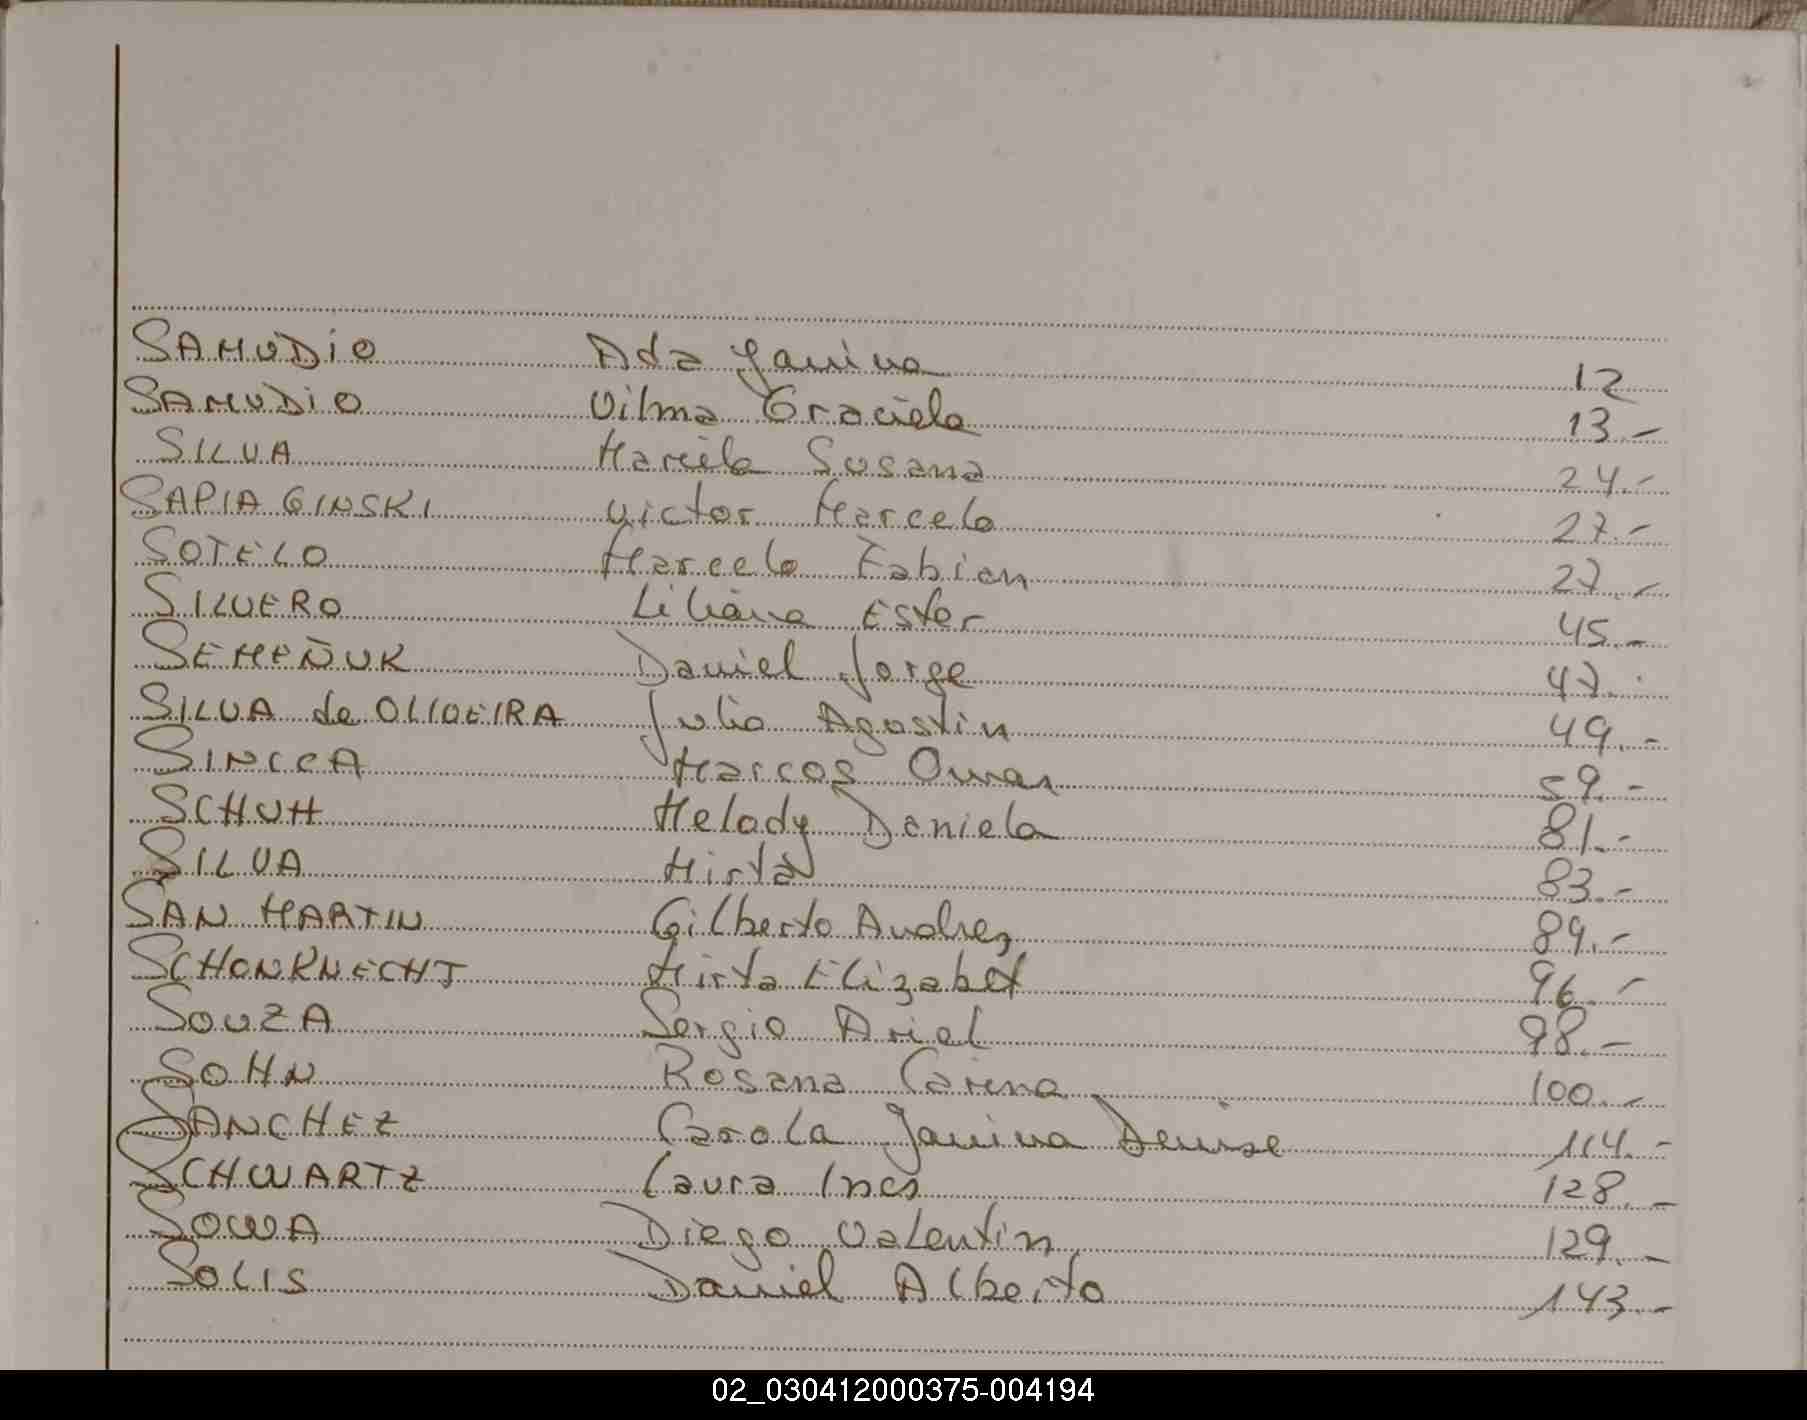 SAMUDIO Ada Janina 12
SAMUDIO Vilma Graciela 13.-
SILVA Mariela Susana 24.-
SAPIAGINSKI Victor Marcelo 27.-
SOTELO Marcelo Fabian 27.-
SILVERO Liliana Ester 45.-
SEMEÑUK Daniel Jorge 47.-
SILVA de OLIVEIRA Julio Agostin 49.-
Marcos Omar 59.-
SCHUH Melody Daniela 81.-
SILVA Mirta 83.-
SAN MARTIN Gilberto Andrez 89.-
SCHONKNECHT Mirta Elizabet 96.-
SOUZA Sergio Ariel 98.-
SOHN Rosana Carina 100.-
SANCHEZ Carola Janina Denise 114.-
SCHWARTZ Laura Ines 128.-
SOWA Diego Valentin 129.-
SOLIS Daniel Alberto 143.-
02_030412000375-004194